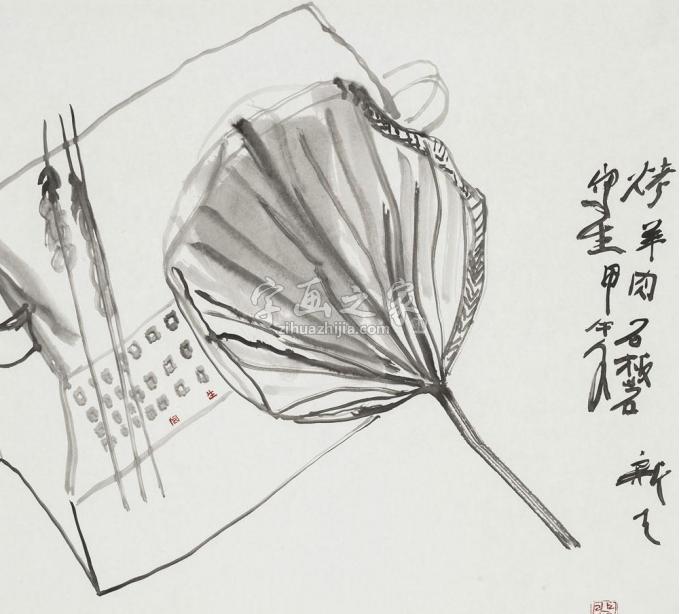 烤羊肉石板岩
写生甲午
字画之家
zihuazhijia.com